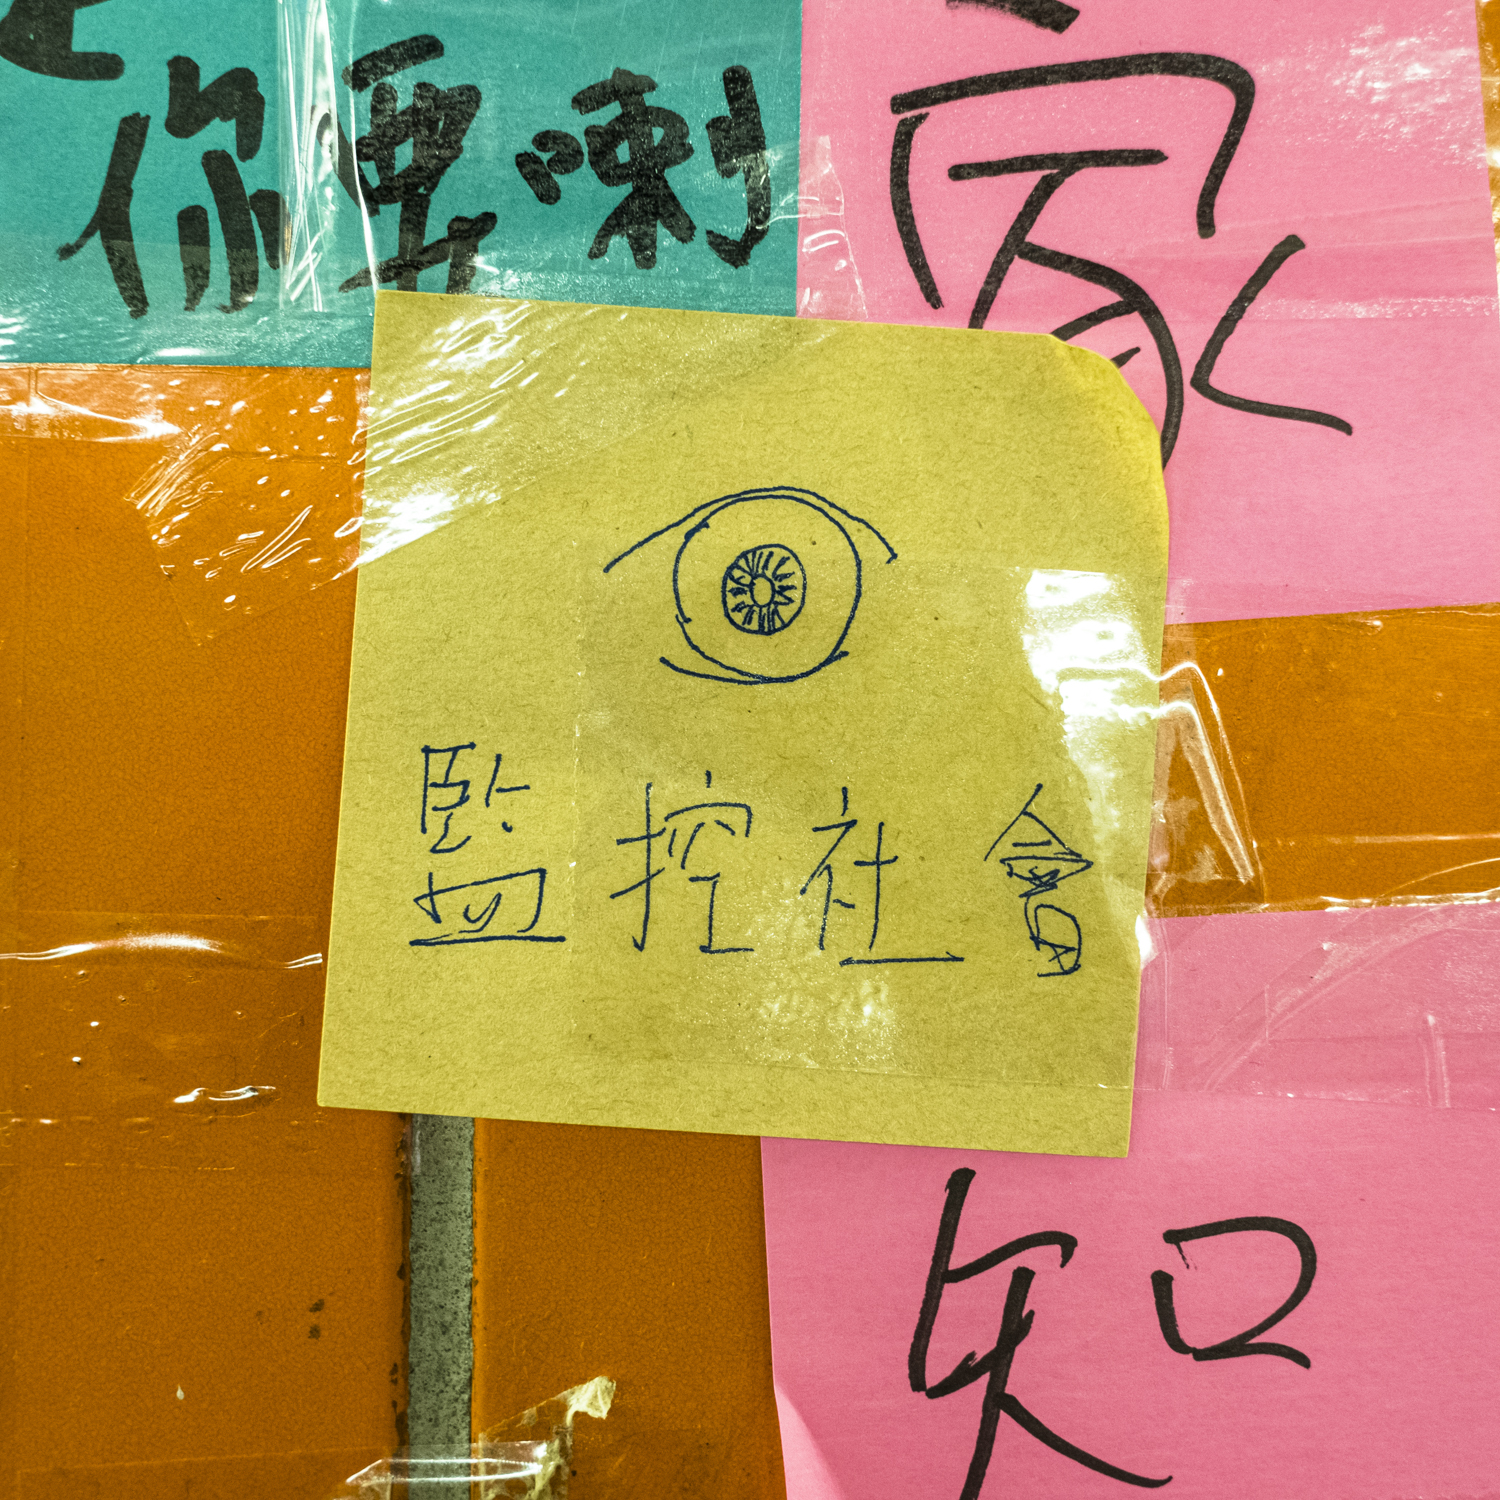 你要喇
家
監控社會
知